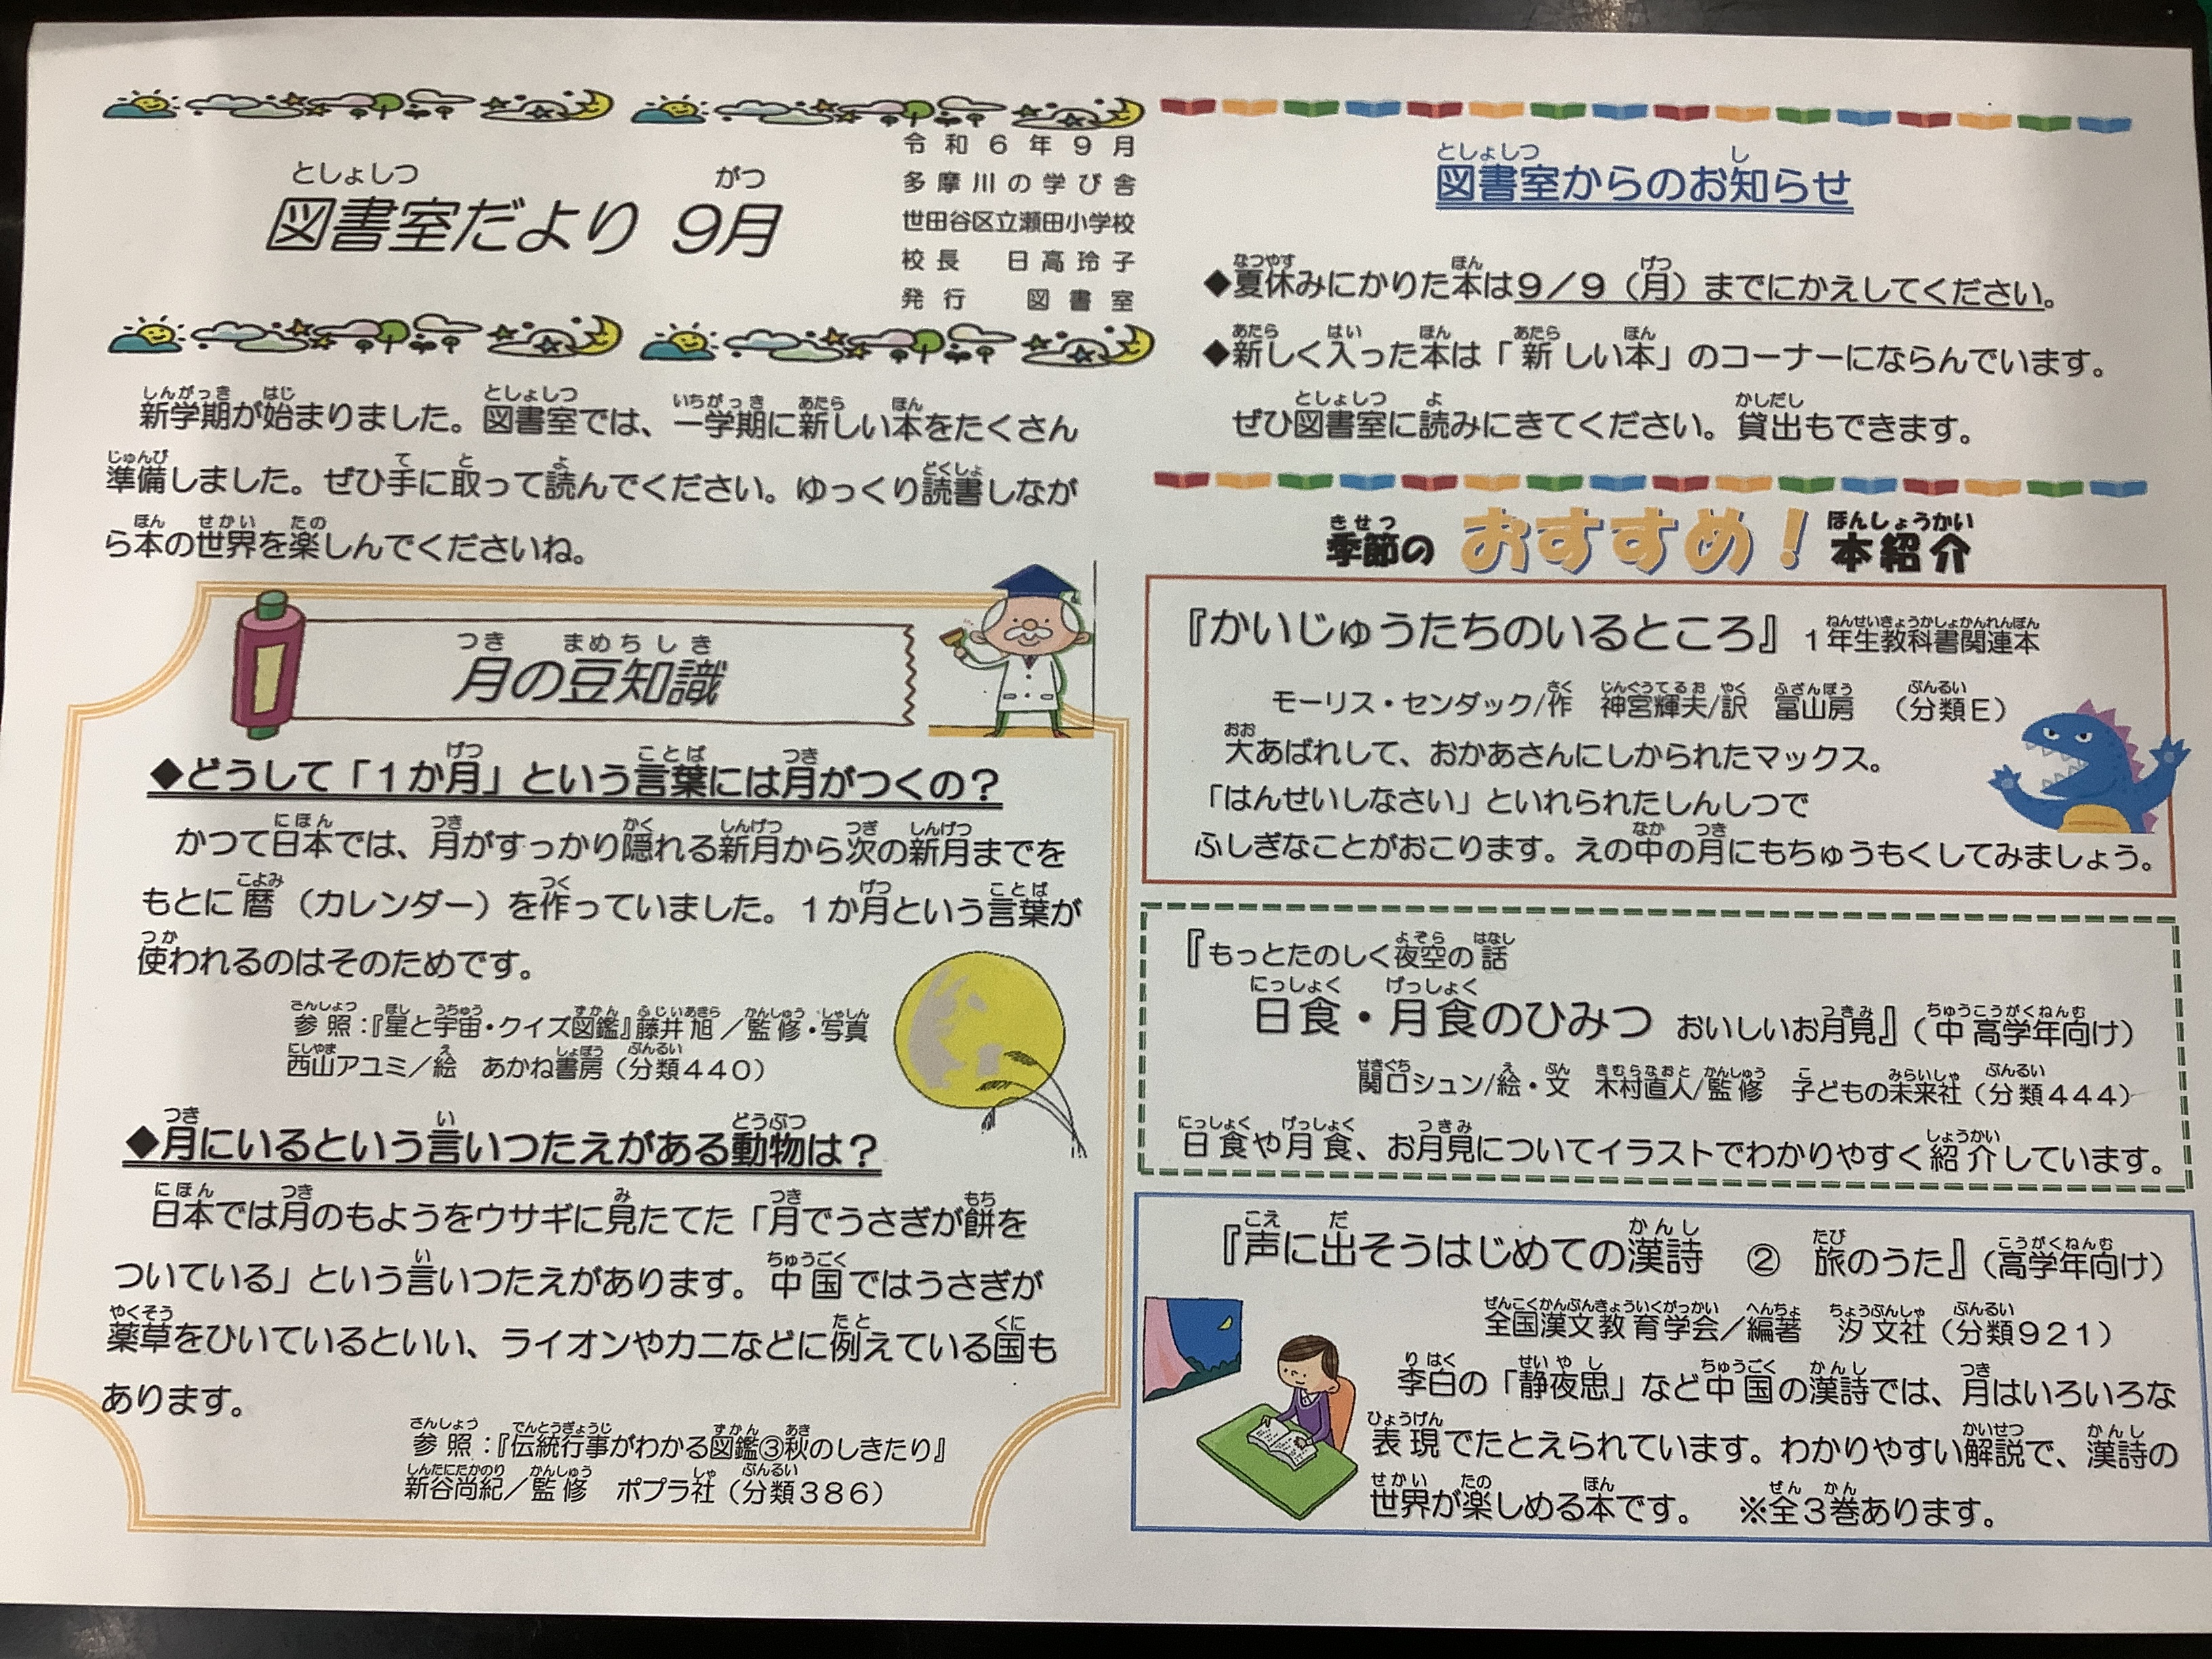 図書室だより 9月
令和6年9月
多摩川の学び舎
世田谷区立瀬田小学校
校長 日高玲子
発行 図書室
新学期が始まりました。図書室では、一学期に新しい本をたくさん
準備しました。ぜひ手に取って読んでください。ゆっくり読書しなが
ら本の世界を楽しんでくださいね。
月の豆知識
◆どうして「1か月」という言葉には月がつくの？
かつて日本では、月がすっかり隠れる新月から次の新月までを
もとに暦（カレンダー）を作っていました。1か月という言葉が
使われるのはそのためです。
参照：『星と宇宙・クイズ図鑑』藤井旭／監修・写真
西山アユミ／絵 あかね書房（分類440）
◆月にいるという言いつたえがある動物は？
日本では月のもようをウサギに見たてた「月でうさぎが餅を
ついている」という言いつたえがあります。中国ではうさぎが
薬草をひいているといい、ライオンやカニなどに例えている国も
あります。
参照：『伝統行事がわかる図鑑③秋のしきたり』
新谷尚紀／監修 ポプラ社（分類386）
図書室からのお知らせ
◆夏休みにかりた本は9／9（月）までにかえしてください。
◆新しく入った本は「新しい本」のコーナーにならんでいます。
ぜひ図書室に読みにきてください。貸出もできます。
季節の おすすめ！ 本紹介
『かいじゅうたちのいるところ』 1年生教科書関連本
モーリス・センダック/作 神宮輝夫/訳 冨山房 （分類E）
大あばれして、おかあさんにしかられたマックス。
「はんせいしなさい」といれられたしんしつで
ふしぎなことがおこります。えの中の月にもちゅうもくしてみましょう。
『もっとたのしく夜空の話
日食・月食のひみつ おいしいお月見』（中高学年向け）
関口シュン/絵・文 木村直人/監修 子どもの未来社（分類444）
日食や月食、お月見についてイラストでわかりやすく紹介しています。
『声に出そうはじめての漢詩 ② 旅のうた』（高学年向け）
全国漢文教育学会／編著 汐文社（分類921）
李白の「静夜思」など中国の漢詩では、月はいろいろな
表現でたとえられています。わかりやすい解説で、漢詩の
世界が楽しめる本です。 ※全3巻あります。